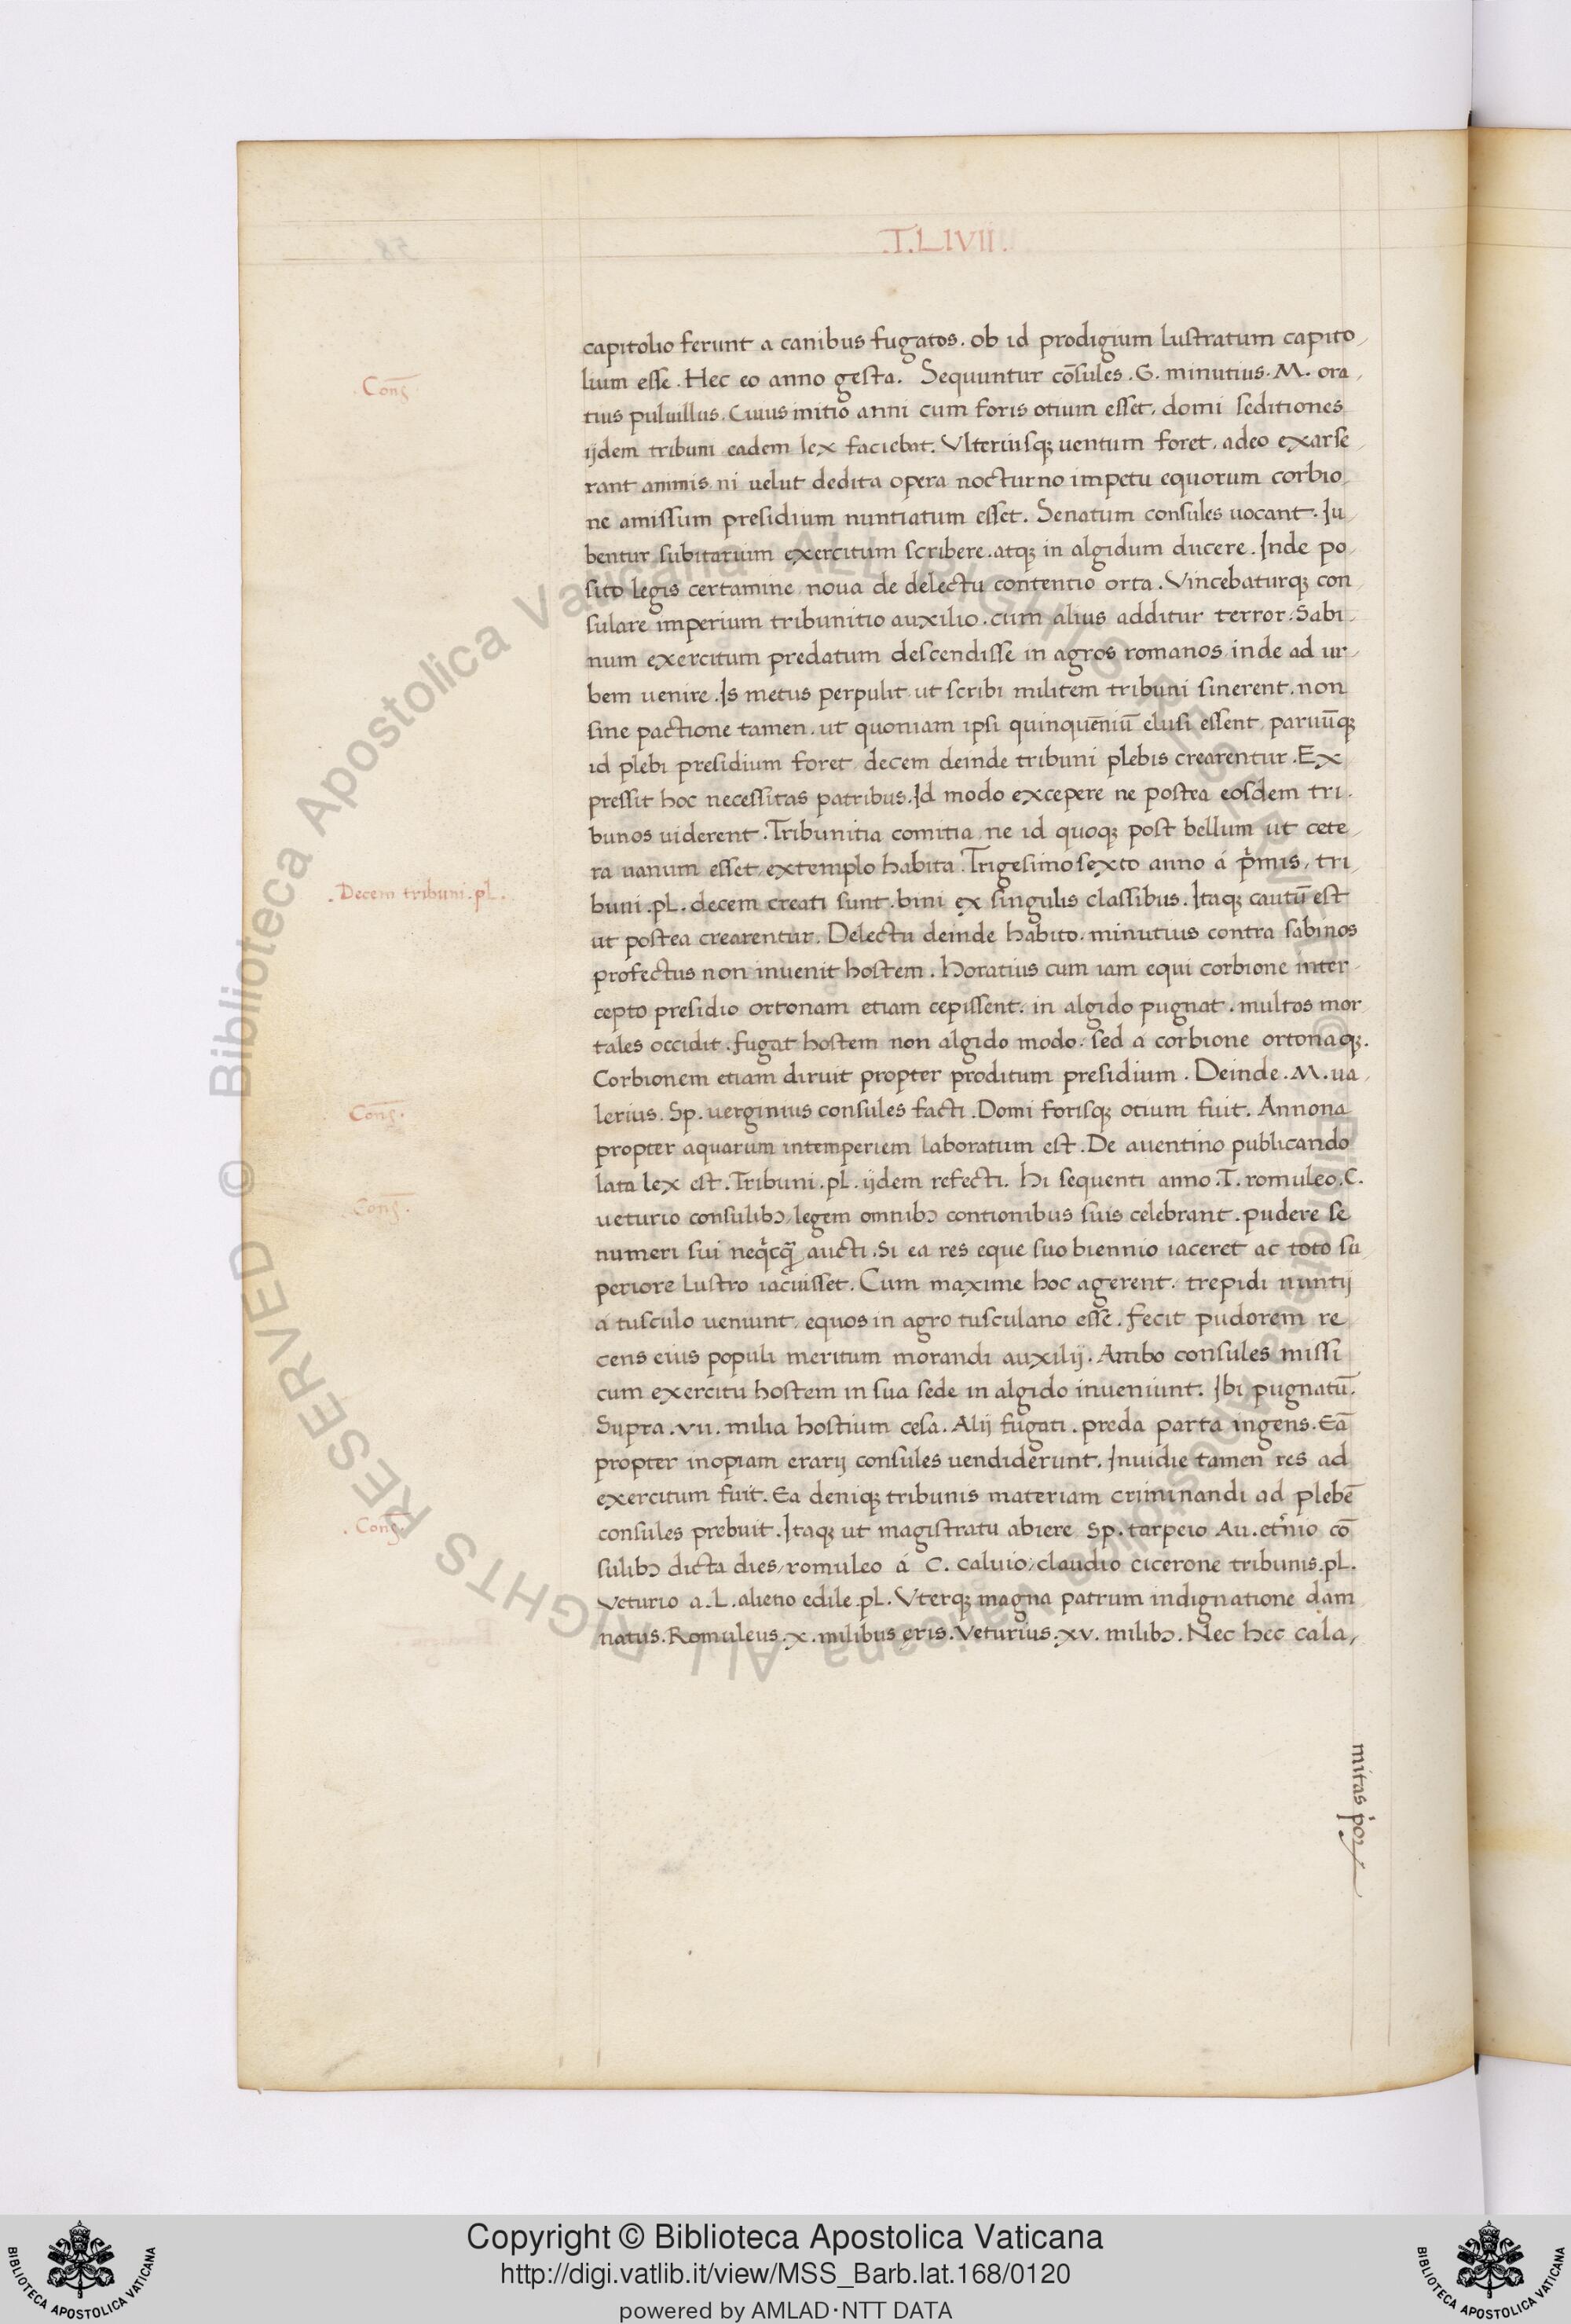 .T.LIVII.
capitolio ferunt a canibus fugatos. ob id prodigium lustratum capito,
lium esse. Hec eo anno gesta. Sequuntur cōsules. G. minutius. M. ora,
tius puluillus. Cuius initio anni cum foris otium esset, domi seditiones
ijdem tribuni eadem lex faciebat. Vlteriusqꝫ uentum foret, adeo exarse,
rant animis, ni uelut dedita opera nocturno impetu equorum corbio,
ne amissum presidium nuntiatum esset. Senatum consules uocant. Iu,
bentur subitarium exercitum scribere. atqꝫ in algidum ducere. Inde po,
sito legis certamine noua de delectu contentio orta. Vincebaturqꝫ con
sulare imperium tribunitio auxilio. cum alius additur terror. Sabi,
num exercitum predatum descendisse in agros romanos, inde ad ur,
bem uenire. Is metus perpulit, ut scribi militem tribuni sinerent. non
sine pactione tamen. ut quoniam ipsi quinquēniū elusi essent, paruūqꝫ
id plebi presidium foret, decem deinde tribuni plebis crearentur. Ex
pressit hoc necessitas patribus. Id modo excepere ne postea eosdem tri,
bunos uiderent. Tribunitia comitia ne id quoqꝫ post bellum ut cete,
ra uanum esset, extemplo habita. Trigesimo sexto anno á p̓mis, tri
buni .pl. decem creati sunt. bini ex singulis classibus. Itaqꝫ cautū est
ut postea crearentur. Delectu deinde habito. minutius contra sabinos
profectus non inuenit hostem. Horatius cum iam equi corbione inter,
cepto presidio ortonam etiam cepissent. in algido pugnat. multos mor
tales occidit. fugat hostem non algido modo. sed á corbione ortonaqꝫ.
Corbionem etiam diruit propter proditum presidium. Deinde .M. ua,
lerius. Sp. uerginius consules facti. Domi forisqꝫ otium fuit. Annona
propter aquarum intemperiem laboratum est. De auentino publicando
lata lex est. Tribuni .pl. ijdem refecti. Hi sequenti anno .T. romuleo. C.
ueturio consulibɔ, legem omnibɔ contionibus suis celebrant. pudere se
numeri sui neq̓cq̄ aucti. Si ea res eque suo biennio iaceret ac toto su,
periore lustro iacuisset. Cum maxime hoc agerent. trepidi nuntij
a tusculo ueniunt, equos in agro tusculano esse. fecit pudorem re,
cens eius populi meritum morandi auxilij. Ambo consules missi
cum exercitu hostem in sua sede in algido inueniunt. Ibi pugnatū.
Supra .vii. milia hostium cesa. Alij fugati. preda parta ingens. Eā
propter inopiam erarij consules uendiderunt. Inuidie tamen res ad
exercitum fuit. Ea deniqꝫ tribunis materiam criminandi ad plebē
consules prebuit. Itaqꝫ ut magistratu abiere Sp. tarpeio Au. et̓nio cō
sulibɔ dicta dies, romuleo á C. caluio, claudio cicerone tribunis .pl.
Veturio a .L. alieno edile .pl. Vterqꝫ magna patrum indignatione dam
natus. Romuleus .x. milibus eris. Veturius .xv. milibɔ. Nec hec cala,
mitas po
.Conſ̄.
.Decem tribuni .pl.
Conſ̄.
.Conſ̄.
.Conſ̄.
© Biblioteca Apostolica Vaticana ALL RIGHTS RESERVED © Biblioteca Apostolica Vaticana ALL RIGHTS RESERVED
Copyright © Biblioteca Apostolica Vaticana
http://digi.vatlib.it/view/MSS_Barb.lat.168/0120
powered by AMLAD·NTT DATA
BIBLIOTECA APOSTOLICA VATICANA
BIBLIOTECA APOSTOLICA VATICANA